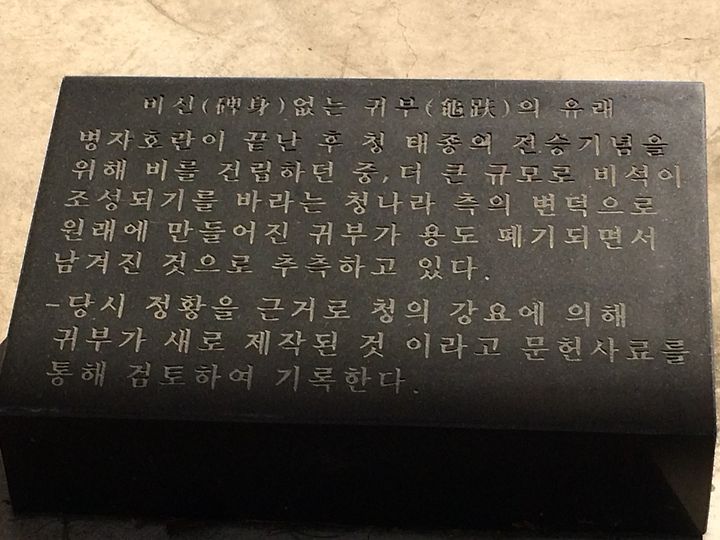 비신(碑身)없는 귀부(龜趺)의 유래
병자호란이 끝난 후 청 태종의 전승기념을
위해 비를 건립하던 중,더 큰 규모로 비석이
조성되기를 바라는 청나라 측의 변덕으로
원래에 만들어진 귀부가 용도 폐기되면서
남겨진 것으로 추측하고 있다.
-당시 정황을 근거로 청의 강요에 의해
귀부가 새로 제작된 것 이라고 문헌사료를
통해 검토하여 기록한다.